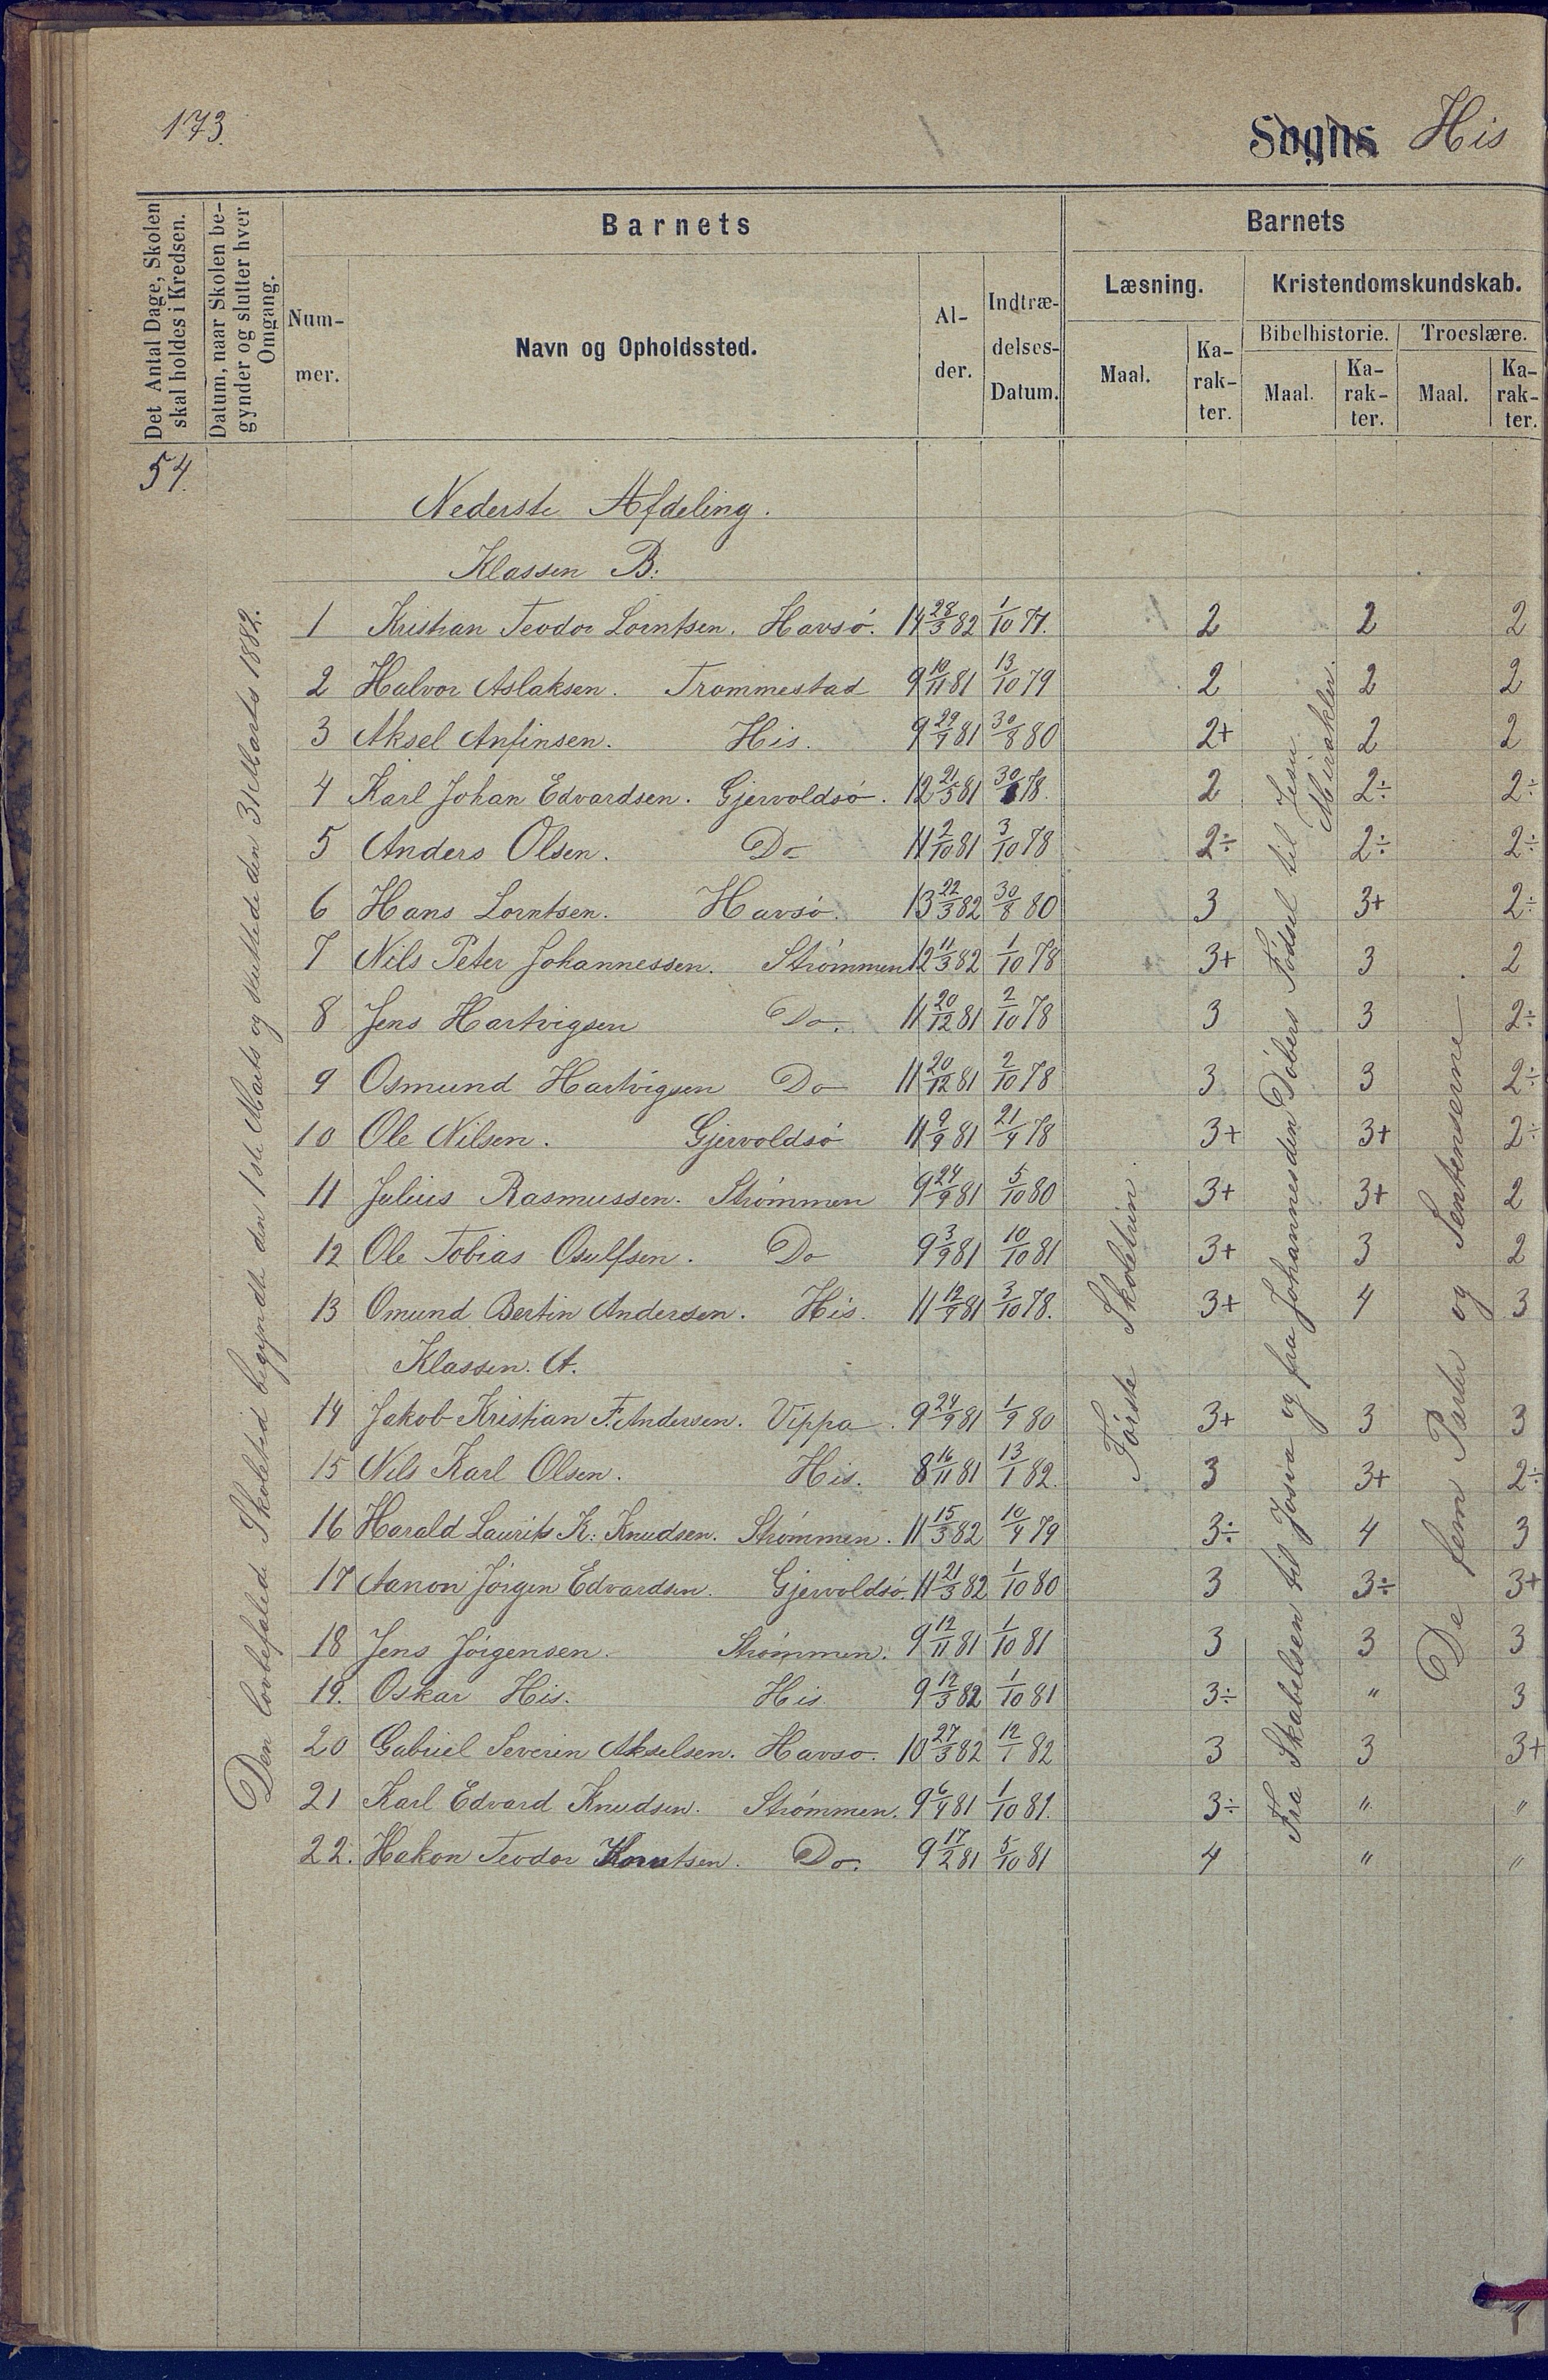 173.
Sogns His
Det Antal Dage, Skolen skal holdes i Kredsen.
Datum, naar Skolen begynder og slutter hver Omgang.
Barnets
Nummer.
Navn og Opholdssted.
Alder.
Indtrædelses-Datum.
Barnets
Læsning.
Maal.
Karakter.
Kristendomskundskab.
Bibelhistorie.
Maal.
Karakter.
Troeslære.
Maal.
Karakter.
54.
Nederste Afdeling.
Klassen B:
1 Kristian Teodor Lorntsen. Havsø. 14 28/3 82 1/10 77. 2 2 2
2 Halvor Aslaksen. Trommestad 9 10/11 81 13/10 79 2 2 2
3 Aksel Anfinsen. His. 9 29/9 81 30/8 80 2+ 2 2
4 Karl Johan Edvardsen. Gjervoldsø. 12 21/5 81 30/8 78. 2 2÷ 2÷
5 Anders Olsen. Do 11 2/10 81 3/10 78 2÷ 2÷ 2÷
6 Hans Lorntsen. Havsø. 13 22/3 82 30/8 80 3 3+ 2÷
7 Nils Peter Johannessen. Strømmen 12 11/3 82 1/10 78 3+ 3 2
8 Jens Hartvigsen Do. 11 20/12 81 2/10 78 3 3 2÷
9 Osmund Hartvigsen Do 11 20/12 81 2/10 78 3 3 2÷
10 Ole Nilsen. Gjervoldsø 11 9/9 81 21/4 78 3+ 3+ 2÷
11 Julius Rasmussen. Strømmen 9 24/9 81 5/10 80 3+ 3+ 2
12 Ole Tobias Osulfsen. Do 9 3/9 81 10/10 81 3+ 3 2
13 Omund Bertin Andersen. His. 11 12/9 81 3/10 78. 3+ 4 3
Klassen. A.
14 Jakob Kristian F. Andersen. Vippa. 9 24/9 81 1/9 80 3+ 3 3
15 Nils Karl Olsen. His. 8 16/11 81 13/1 82. 3 3+ 2÷
16 Harald Laurits K: Knudsen. Strømmen. 11 15/3 82 10/4 79 3÷ 4 3
17 Aanon Jörgen Edvardsen. Gjervoldsø. 11 21/3 82 1/10 80 3 3÷ 3+
18 Jens Jörgensen. Strømmen. 9 12/11 81 1/10 81 3 3 3
19. Oskar His. His 9 12/3 82 1/10 81 3÷ " 3
20 Gabriel Severin Akselsen. Havsø. 10 27/3 82 12/1 82 3 3 3+
21 Karl Edvard Knudsen. Strømmen. 9 6/4 81 1/10 81. 3÷ " "
22. Hakon Teodor Do. 9 17/2 81 5/10 81 4 " "
Den lovbefalede Skoletid begyndte den 1ste Marts og sluttede den 31 Marts 1882.
Første Skoletrin.
Fra Skabelsen til Josva og fra Johannes den Døbers Fødsel til Jesu Mirakler.
De fem Parter og Sentenserne